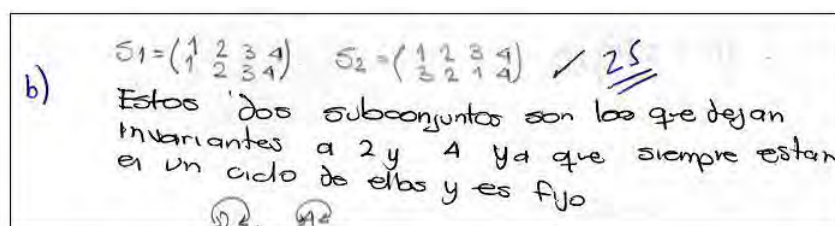 b) S1 = (1 2 3 4 / 1 2 3 4) S2 = (1 2 3 4 / 3 2 1 4) ✓ 25
Estos dos subconjuntos son los que dejan
invariantes a 2 y 4 ya que siempre estan
en un ciclo de ellos y es fijo
2 4